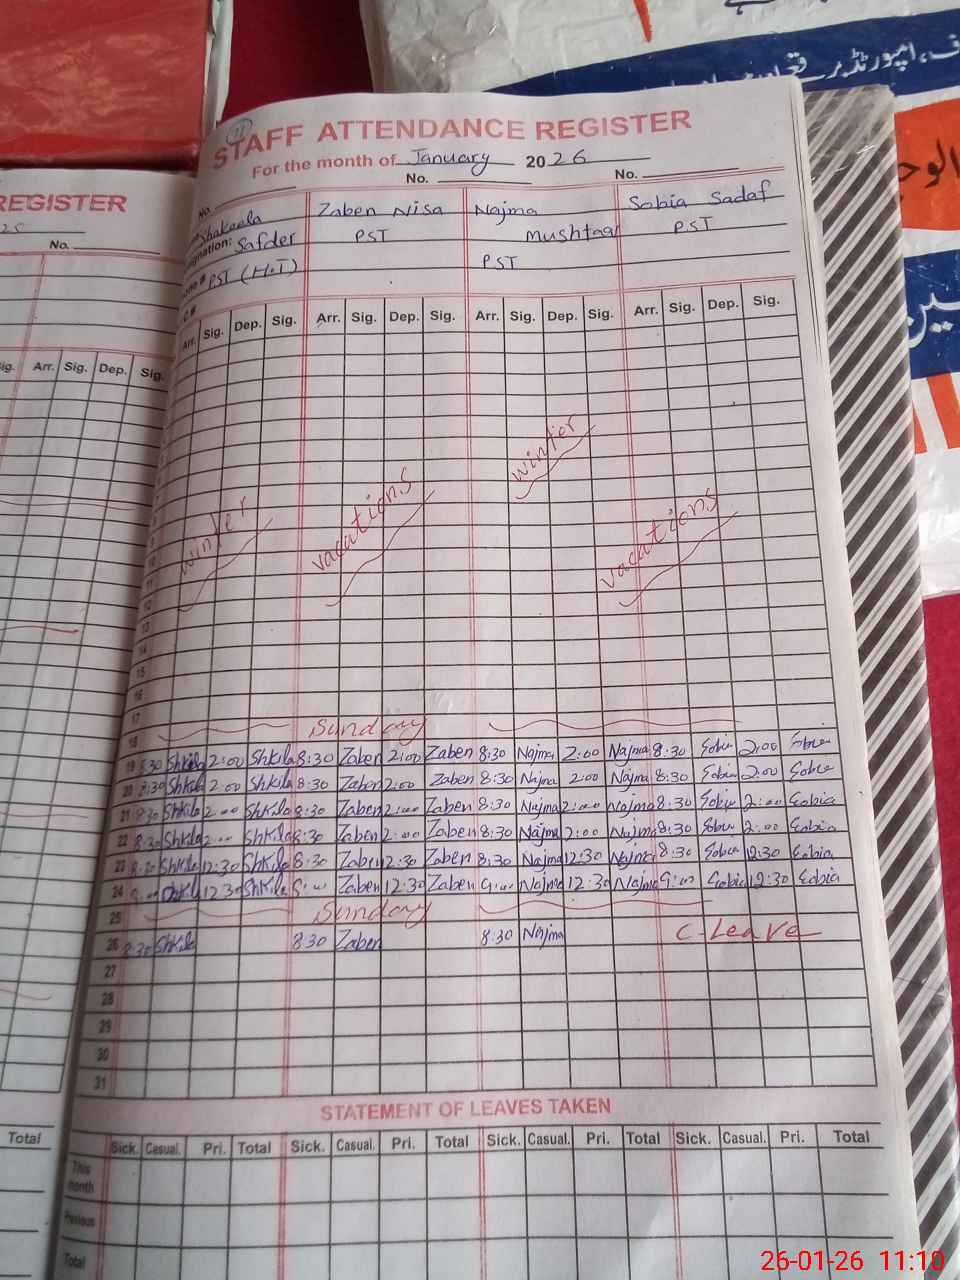 21
STAFF ATTENDANCE REGISTER
For the month of January 2026
No. No. No.
Shakeela Zaben Nisa Najma Sobia Sadaf
Designation: Safder PST Mushtaq PST
PST (H.T) PST
Arr. Sig. Dep. Sig. Arr. Sig. Dep. Sig. Arr. Sig. Dep. Sig. Arr. Sig. Dep. Sig.
winter
vacations
winter
vacations
12
13
14
15
16
17
18 Sunday
19 8:30 Shkila 2:00 Shkila 8:30 Zaben 2:00 Zaben 8:30 Najma 2:00 Najma 8:30 Sobia 2:00 Sobia
20 8:30 Shkila 2:00 Shkila 8:30 Zaben 2:00 Zaben 8:30 Najma 2:00 Najma 8:30 Sobia 2:00 Sobia
21 8:30 Shkila 2:00 Shkila 8:30 Zaben 2:00 Zaben 8:30 Najma 2:00 Najma 8:30 Sobia 2:00 Sobia
22 8:30 Shkila 2:00 Shkila 8:30 Zaben 2:00 Zaben 8:30 Najma 2:00 Najma 8:30 Sobia 2:00 Sobia
23 8:30 Shkila 12:30 Shkila 8:30 Zaben 12:30 Zaben 8:30 Najma 12:30 Najma 8:30 Sobia 12:30 Sobia
24 9:00 Shkila 12:30 Shkila 9:00 Zaben 12:30 Zaben 9:00 Najma 12:30 Najma 9:00 Sobia 12:30 Sobia
25 Sunday
26 8:30 Shkila 8:30 Zaben 8:30 Najma C-Leave
27
28
29
30
31
STATEMENT OF LEAVES TAKEN
Sick. Casual. Pri. Total Sick. Casual. Pri. Total Sick. Casual. Pri. Total Sick. Casual. Pri. Total
This month
Previous
Total
REGISTER
25
No.
Sig. Arr. Sig. Dep. Sig.
Total
26-01-26 11:10